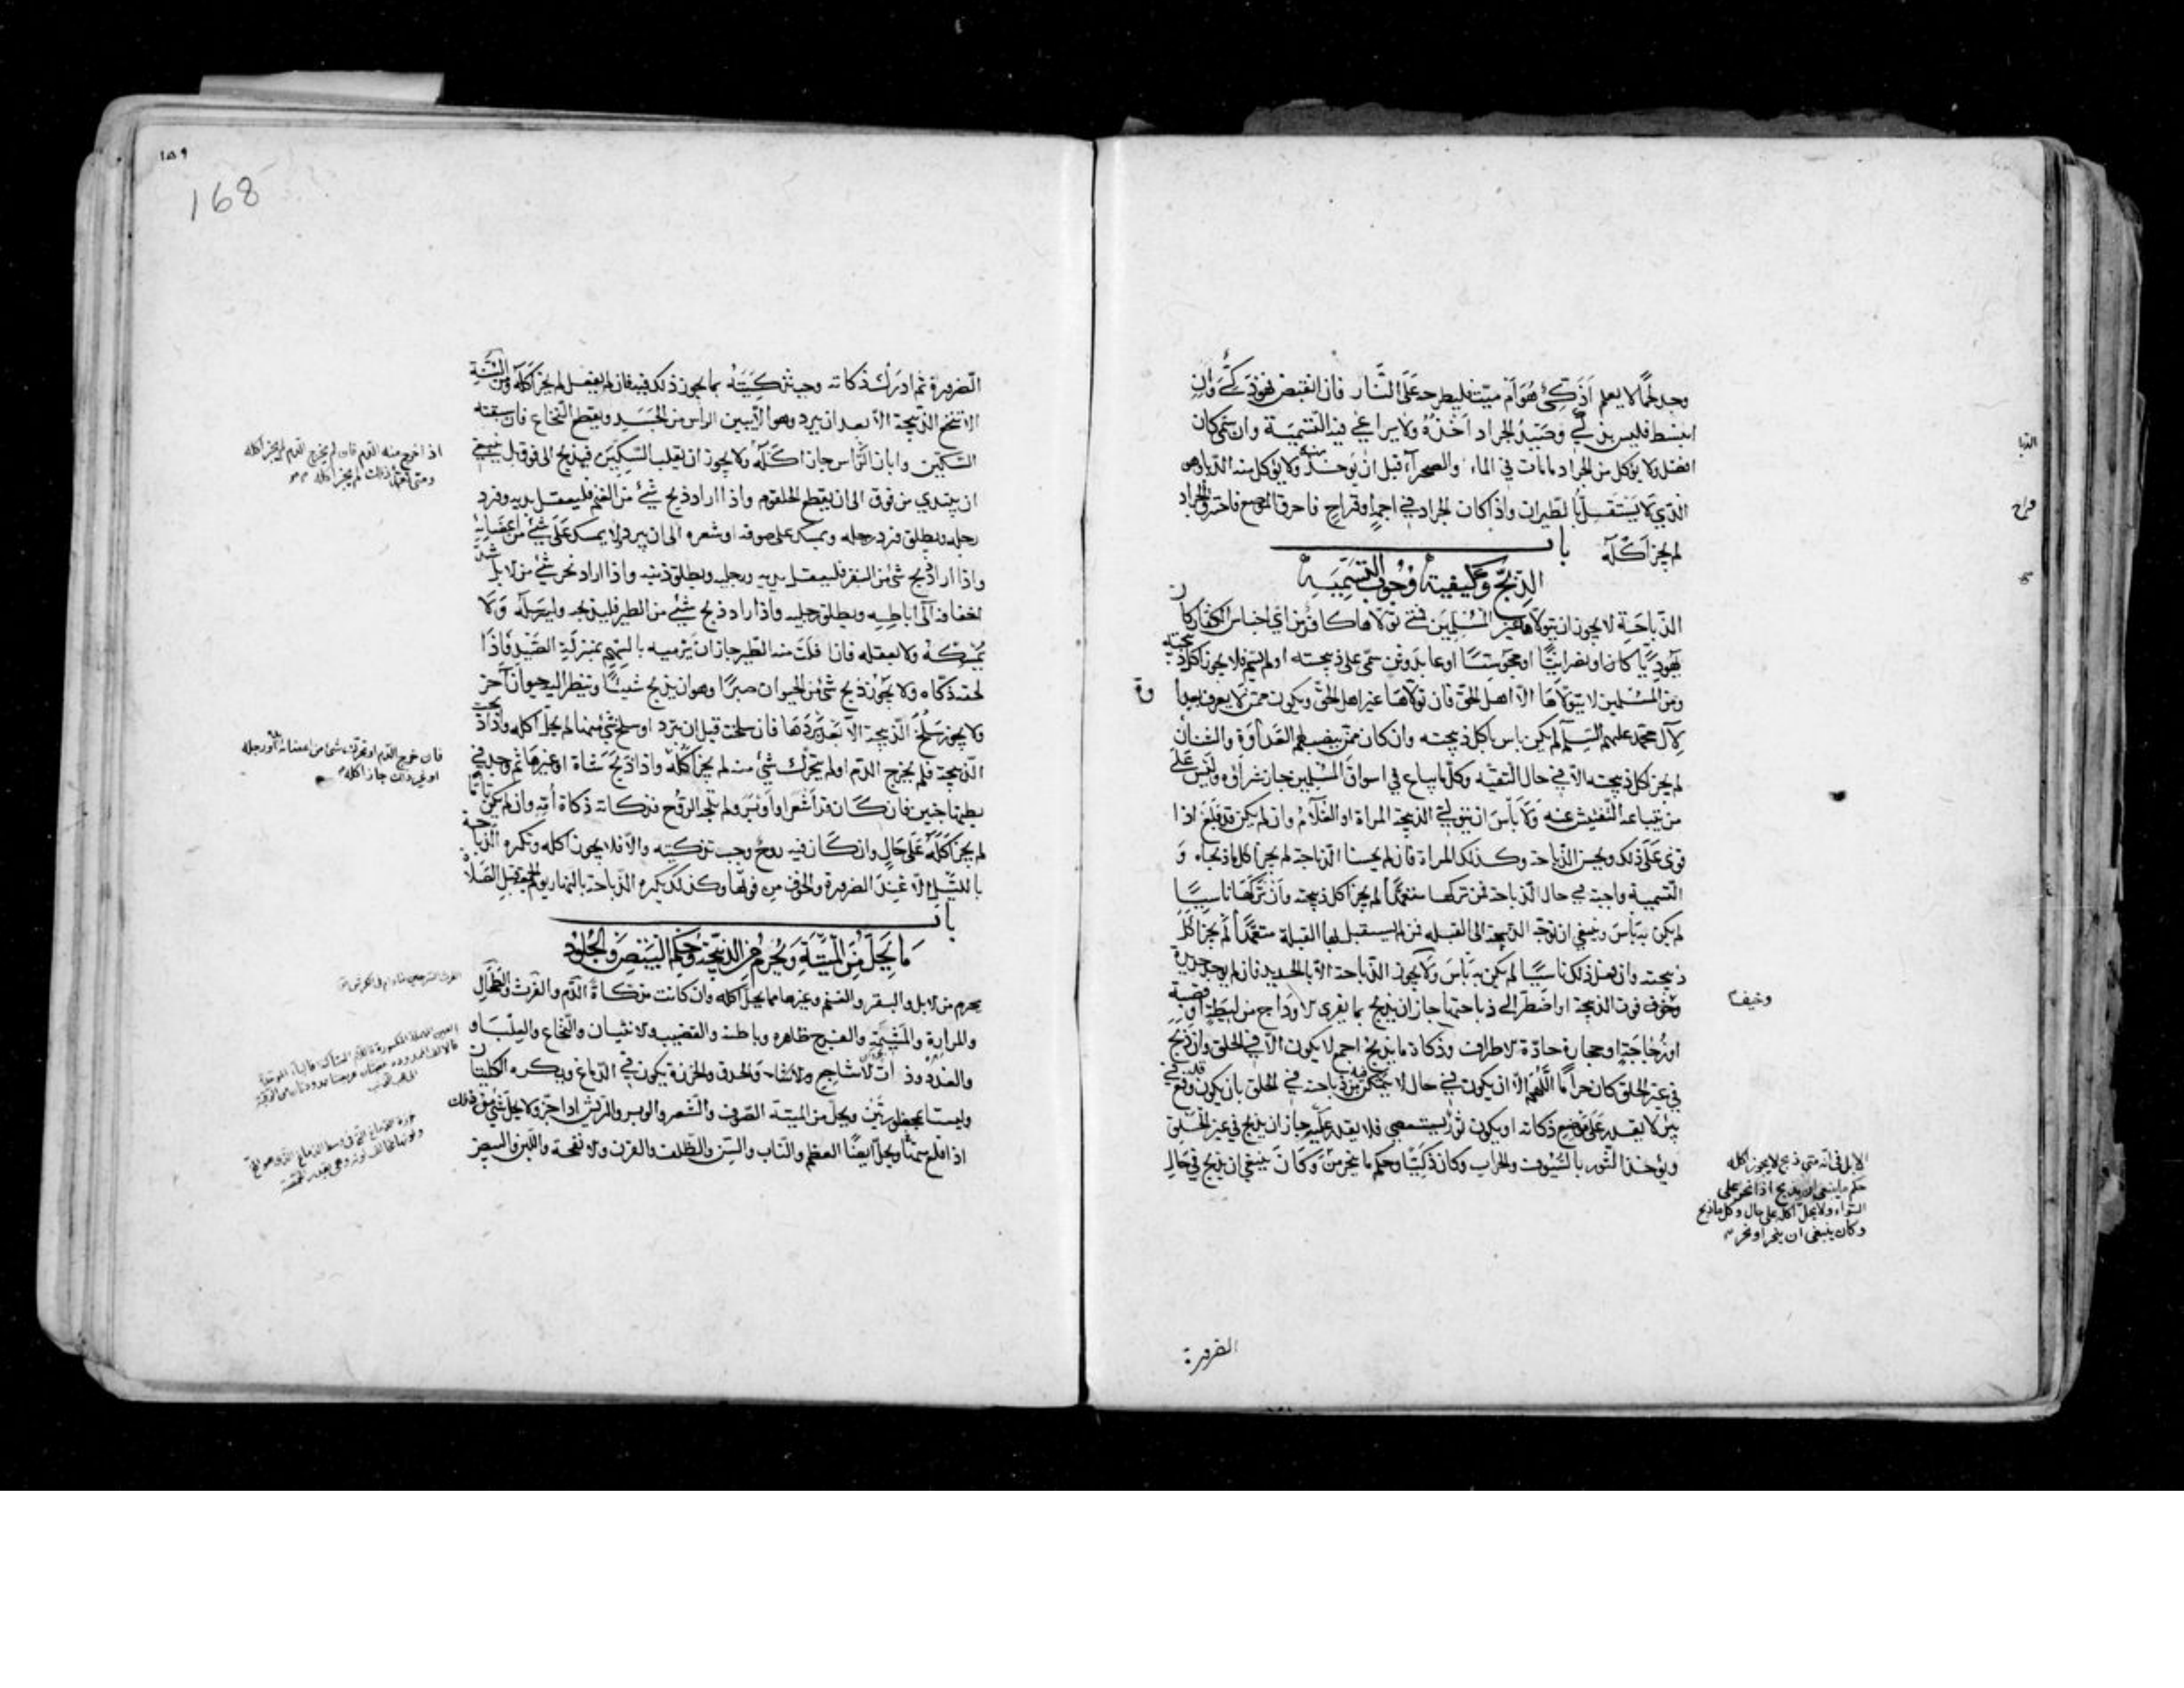 وجد لحمًا لا يعلم أذكيّ هو أم ميت فليطرحه على النار فان انقبض فهو ذكيّ وان
انبسط فليس بذكيّ وصيد الجراد أخذه ولا يراعي فيه التسمية وان سمى كان
افضل ولا يؤكل من الجراد ما مات في الماء والصحراء قبل ان يوخذ ولا يؤكل منه الدبا وهو
الذي لا يستقلّ بالطيران واذا كان الجراد في اجمة او قراح فاحرق الموضع فاحترق الجراد
لم يجز اكله باب
الذبح وكيفيته ووجوب التسمية
الذباحة لا يجوز ان يتولاها غير المسلمين فمتى تولاها كافر من اي اجناس الكفار كان
يهوديًا كان او نصرانيًا او مجوسيًا او عابد وثن سمى على ذبيحته او لم يسم فلا يجوز اكل ذبيحته
ومن المسلمين لا يتولاها الا اهل الحق فان تولاها غير اهل الحق ويكون ممن لا يعرف بعداوة
لآل محمد عليهم السلم لم يكن باس باكل ذبيحته وان كان ممن ينصب لهم العداوة والشنأن
لم يجز اكل ذبيحته الا في حال التقية وكل ما يباع في اسواق المسلمين جاز شراؤه وليس على
من يبتاعه التفتيش عنه ولا بأس ان يتولى الذبيحة المراة او الغلام وان لم يكن قد بلغ اذا
قوى على ذلك ويحسن الذباحة وكذلك المراة فان لم يحسنا الذباحة لم يجز اكل ما ذبحاه و
التسمية واجبة في حال الذباحة فمن تركها متعمدًا لم يجز اكل ذبيحته وان تركها ناسيًا
لم يكن به بأس وينبغي ان توجّه الذبيحة الى القبلة فمن لم يستقبل بها القبلة متعمدًا لم يجز اكل
ذبيحته وان فعل ذلك ناسيًا لم يكن به بأس ولا يجوز الذباحة الا بالحديد فان لم يوجد حديدة
وخيف فوت الذبيحة او اضطر الى ذباحتها جاز ان يذبح بما يفري الاوداج من ليطة او قصبة
او زجاجة او حجارة حادة الاطراف وذكاة ما يذبح اجمع لا يكون الا في الحلق وان ذبح
في غير الحلق كان حرامًا اللهم الا ان يكون في حال لا يتمكن فيه من ذباحته في الحلق بان يكون قد وقع في
بئر لا يقدر على موضع ذكاته او يكون ثور يستعصي فلا يقدر عليه جاز ان يذبح في غير الحلق
ويؤخذ الثور بالسيوف والحراب وكان ذكيًا وحكم ما ينحر من وكان ينبغي ان يذبح في حال
وخيف
الابل في انه متى ذبح لا يجوز اكله
حكم ما ينبغي ان يذبح اذا نحر على
السواء ولا يحل اكله على حال وكل ما ذبح
وكان ينبغي ان ينحر او نحر
الضرورة
168
١٥٩
الضرورة ثم ادرك ذكاته وجب تذكيته بما يجوز ذلك فيه فان لم يفعل لم يجز اكله ومن السنة
الا تنخع الذبيحة الا بعد ان يبرد وهو الا يبين الراس من الجسد ويقطع النخاع فان سبقته
السكين وابان الراس جاز اكله ولا يجوز ان يقلب السكين فيذبح الى فوق بل ينبغي
ان يبتدي من فوق الى ان يقطع الحلقوم واذا اراد ذبح شيء من الغنم فليعقل يديه وفرد
رجله ويطلق فرد رجله ويمسك على صوفه او شعره الى ان يبرد ولا يمسك على شيء من اعضائه
واذا اراد ذبح شيء من البقر فليعقل يديه ورجليه ويطلق ذنبه واذا اراد نحر شيء من الابل شدّ
اخفافه الى اباطه ويطلق رجليه واذا اراد ذبح شيء من الطير فليذبحه وليرسله ولا
يمسكه ولا يعقله فاذا فلت منه الطير جاز ان يرميه بالسهم بمنزلة الصيد فاذا
لحقه ذكاه ولا يجوز ذبح شيء من الحيوان صبرًا وهو ان يذبح شيئًا وينظر اليه حيوان آخر
ولا يجوز سلخ الذبيحة الا بعد بردها فان سلخت قبل ان تبرد او سلخ شيء منها لم يحل اكله واذا ذبحت
الذبيحة فلم يخرج الدم او لم يتحرك شيء منه لم يجز اكله واذا ذبح شاة او غيرها ثم وجد في
بطنها جنين فان كان قد اشعر او اوبر ولم تلجه الروح فذكاته ذكاة أمه وان لم يكن تامًّا
لم يجز اكله على حال وان كان فيه روح وجب تذكيته والا فلا يجوز اكله وتكره الذباحة
بالليل الا عند الضرورة والخوف من فوتها وكذلك يكره الذباحة بالنهار يوم الجمعة قبل الصلاة
باب
ما يحل من الميتة ويحرم من الذبيحة وحكم البيض والجلود
يحرم من الابل والبقر والغنم وغيرها مما يحل اكله وان كانت مذكاة الدم والفرث والطحال
والمرارة والمشيمة والفرج ظاهره وباطنه والقضيب والانثيان والنخاع والعلباء و
والغدد وذات الاشاجع والحدق والخرزة يكون في الدماغ ويكره الكليتان
وليستا بمحظورتين ويحل من الميتة الصوف والشعر والوبر والريش اذا جز ولا يحل شيء من ذلك
اذا قلع منها ويحل ايضًا العظم والناب والسن والظلف والقرن والانفحة واللبن والبيض
اذا خرج منه الدم فان لم يخرج الدم لم يجز اكله
ومتى ذلك لم يجز اكله
فان خرج الدم او تحرك شيء من اعضائه او رجله
او غير ذلك جاز اكله